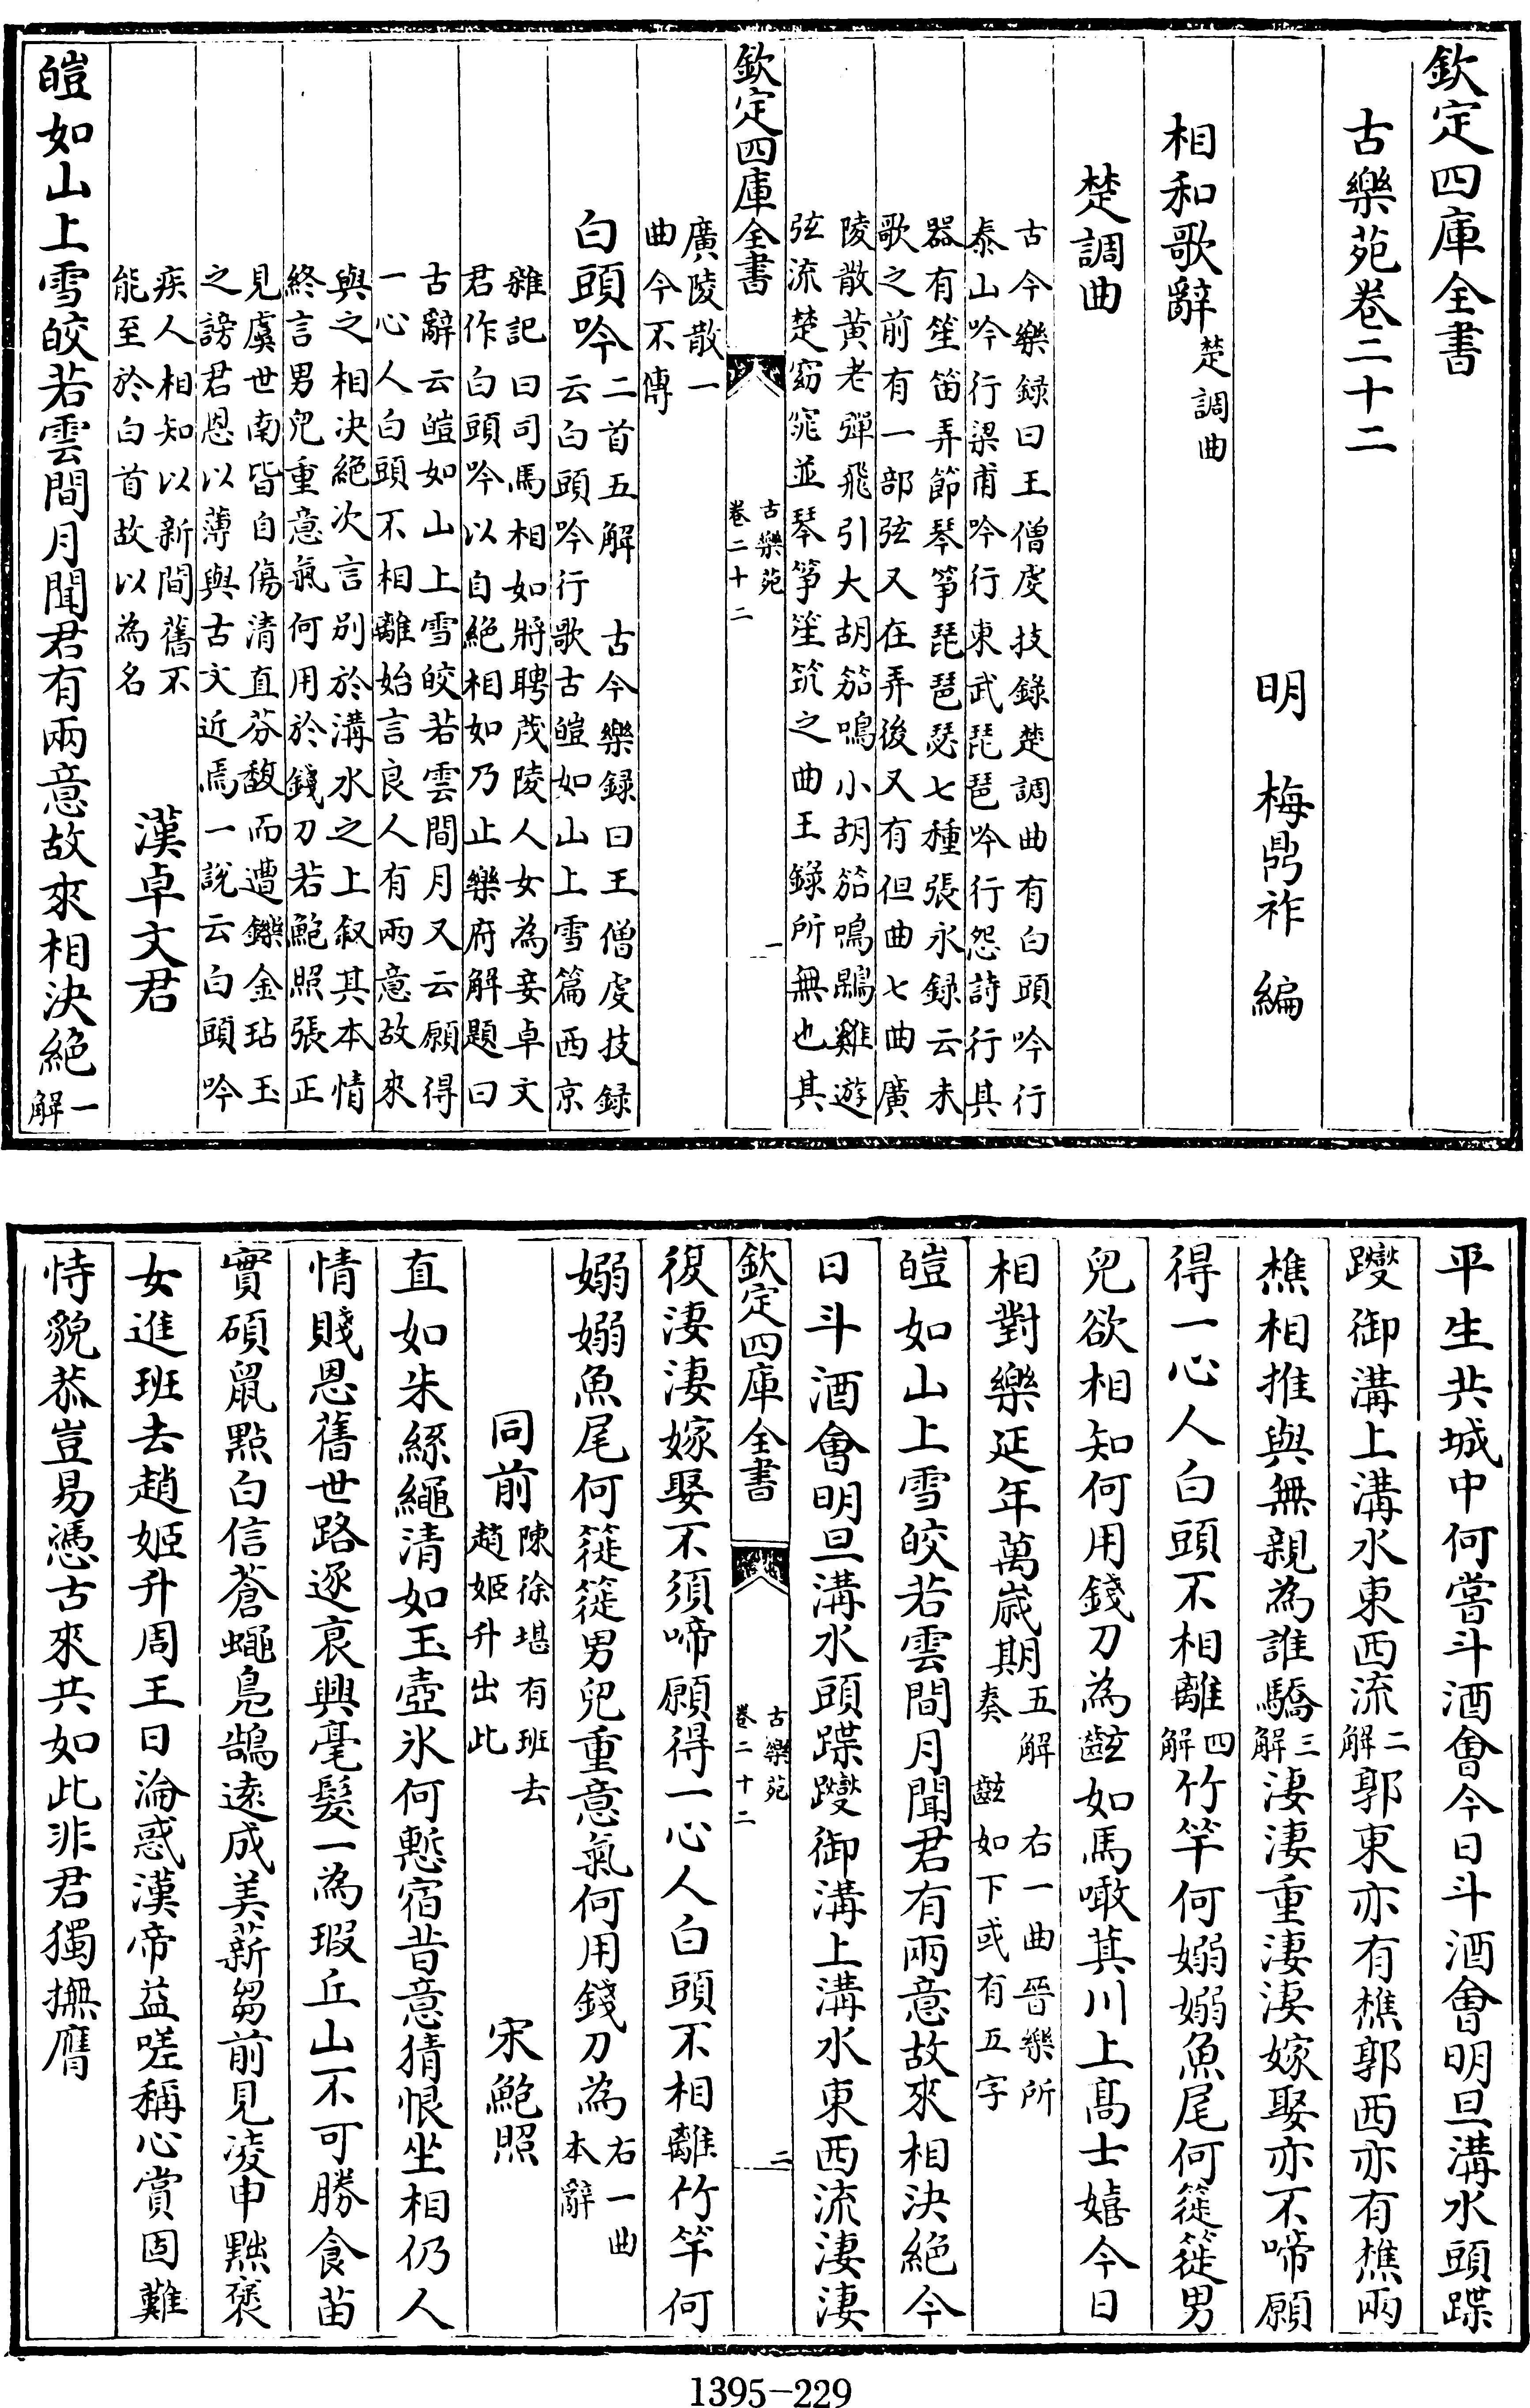 欽定四庫全書
古樂苑卷二十二
明　梅鼎祚　編
相和歌辭楚調曲
楚調曲
古今樂録曰王僧虔技錄楚調曲有白頭吟行
泰山吟行梁甫吟行東武琵琶吟行怨詩行其
器有笙笛弄節琴箏琵琶瑟七種張永録云未
歌之前有一部弦又在弄後又有但曲七曲廣
陵散黄老彈飛引大胡笳鳴小胡笳鳴鵾雞遊
弦流楚窈窕並琴箏笙筑之曲王錄所無也其
欽定四庫全書
古樂苑
卷二十二
一
廣陵散一
曲今不傳
白頭吟二首五解　古今樂録曰王僧虔技録
云白頭吟行歌古皚如山上雪篇西京
雜記曰司馬相如將聘茂陵人女為妾卓文
君作白頭吟以自絶相如乃止樂府解題曰
古辭云皚如山上雪皎若雲間月又云願得
一心人白頭不相離始言良人有兩意故來
與之相決絶次言别於溝水之上叙其本情
終言男兒重意氣何用於錢刀若鮑照張正
見虞世南皆自傷清直芬馥而遭鑠金玷玉
之謗君恩以薄與古文近焉一説云白頭吟
疾人相知以新間舊不
能至於白首故以為名
漢卓文君
皚如山上雪皎若雲間月聞君有兩意故來相決絶一解
平生共城中何嘗斗酒會今日斗酒會明旦溝水頭蹀
躞御溝上溝水東西流二解郭東亦有樵郭西亦有樵兩
樵相推與無親為誰驕三解淒淒重淒淒嫁娶亦不啼願
得一心人白頭不相離四解竹竿何嫋嫋魚尾何簁簁男
兒欲相知何用錢刀為䶡如馬噉萁川上高士嬉今日
相對樂延年萬歲期五解　右一曲晉樂所
奏　䶡如下或有五字
皚如山上雪皎若雲間月聞君有兩意故來相決絕今
日斗酒會明旦溝水頭蹀躞御溝上溝水東西流淒淒
欽定四庫全書
古樂苑
卷二十二
二
復淒淒嫁娶不須啼願得一心人白頭不相離竹竿何
嫋嫋魚尾何簁簁男兒重意氣何用錢刀為右一曲
本辭
同前陳徐堪有班去
趙姬升出此
宋鮑照
直如朱絲繩清如玉壺氷何慙宿昔意猜恨坐相仍人
情賤恩舊世路逐衰興毫髮一為瑕丘山不可勝食苗
實碩鼠點白信蒼蠅鳬鵠遠成美薪芻前見凌申黜褒
女進班去趙姬升周王日淪惑漢帝益嗟稱心賞固難
恃貌恭豈易憑古來共如此非君獨撫膺
1395-229